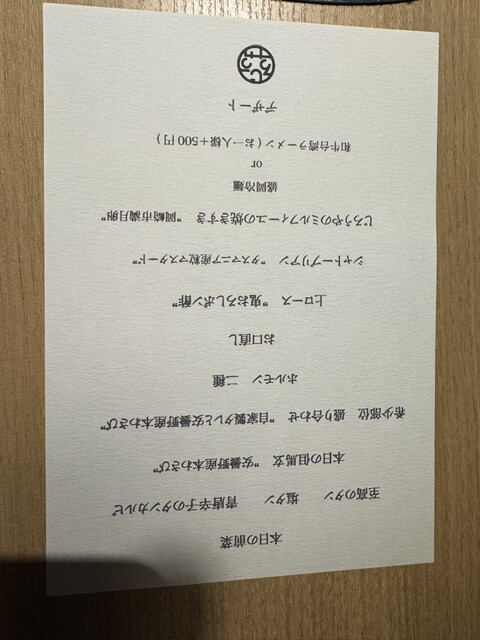 本日の前菜
至高のタン　塩タン　青唐辛子のタンカルビ
本日の但馬玄　"安曇野産本わさび"
希少部位　盛り合わせ　"自家製タレと安曇野産本わさび"
ホルモン　二種
お口直し
上ロース　"鬼おろしポン酢"
シャトーブリアン　"タスマニア産粒マスタード"
じろうやのミルフィーユの焼きすき　"岡崎市満月卵"
盛岡冷麺
or
和牛台湾ラーメン（お一人様＋500円）
デザート